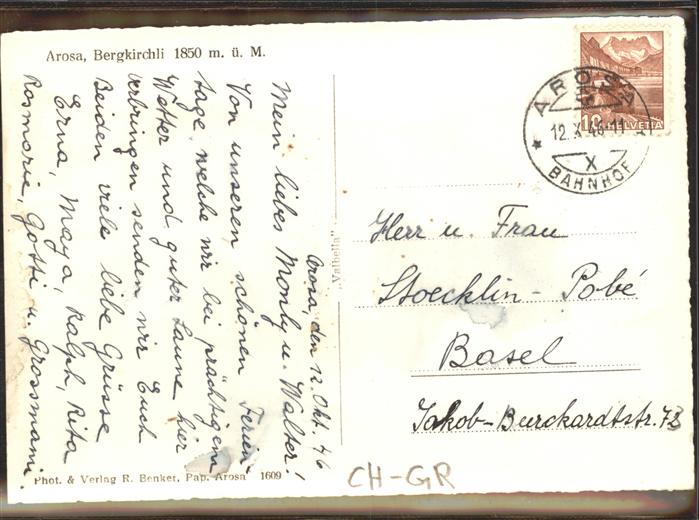 Arosa, Bergkirchli 1850 m. ü. M.
Arosa, den 12. Okt. 46
Mein liebes Monly u. Walter!
Von unseren schönen Ferien-
tage, welche wir bei prächtigem
Wetter und guter Laune hier
verbringen senden wir Euch
Beiden viele liebe Grüsse
Erna, Maya, Ralph, Rita
Rosmarie, Gotti u. Grossmami.
Phot. & Verlag R. Benker, Pap. Arosa 1609
„Valbella"
10 HELVETIA
AROSA
12.X.46-11
X
BAHNHOF
Herr u. Frau
Stoecklin-Pobé
Basel
Jakob-Burckardtstr. 73
CH-GR